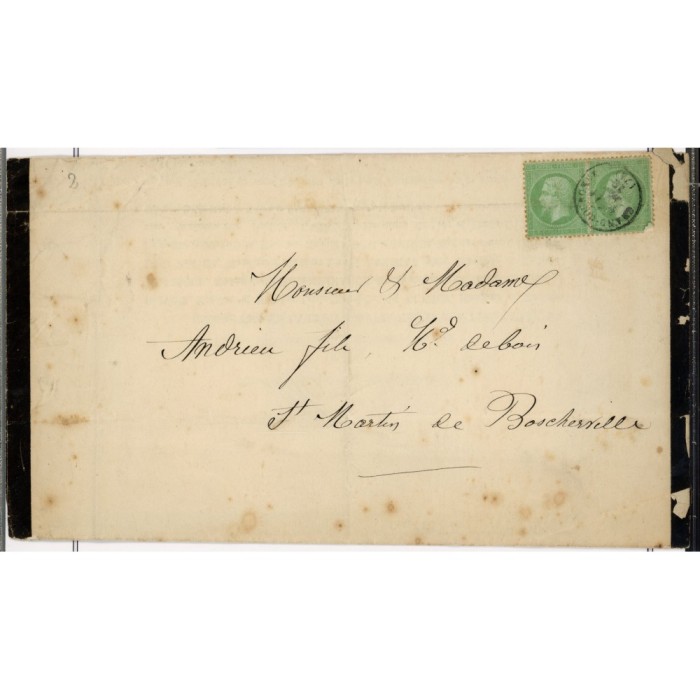 2
Monsieur & Madame
Andrieu fils, Md. de bois
St Martin de Boscherville